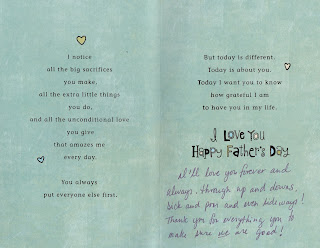 I notice
all the big sacrifices
you make,
all the extra little things
you do,
and all the unconditional love
you give
that amazes me
every day.
You always
put everyone else first.
But today is different.
Today is about you.
Today I want you to know
how grateful I am
to have you in my life.
I Love You
Happy Father's Day
I'll love you forever and
always, through up and downs,
sick and poor and even sideways!
Thank you for everything you to
make sure we are good!